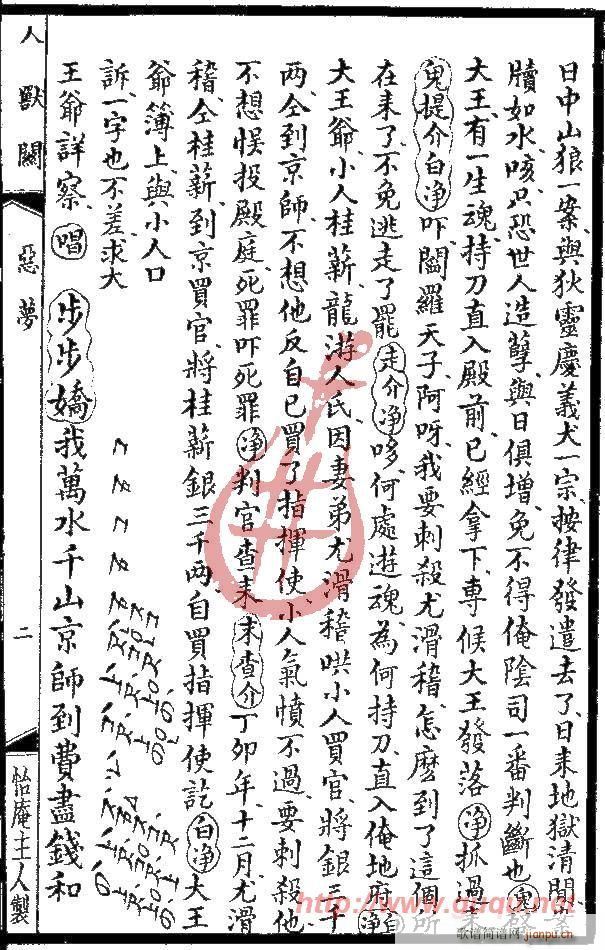 日中山狼一案、與狄靈慶義犬一宗、按律發遣去了、日来地獄清閒、
牘如水、咳、只恐世人造孽、與日俱增、免不得俺陰司一番判斷也、鬼
大王、有一生魂、持刀直入殿前、已經拿下、專候大王發落、淨抓過
鬼提介白淨吓、閻羅天子、阿呀、我要刺殺尤滑稽、怎麽到了這個
在来了、不免逃走了罷、走介淨哆、何處遊魂、為何持刀直入俺地府、白淨
大王爺、小人桂薪、龍游人氏、因妻弟尤滑稽、哄小人買官、將銀三千
两、仝到京師、不想他反自己買了指揮使、小人氣憤不過、要刺殺他、
不想悞投殿庭、死罪吓死罪、淨判官查来、末查介丁卯年、十二月、尤滑
稽仝桂薪、到京買官、將桂薪銀三千两、自買指揮使訖、白淨大王
爺簿上、與小人口
訴、一字也不差、求大
王爺詳察、唱 步步嬌 我萬水千山京師到費盡錢和
人獸關 惡夢 二 怡庵主人製
http://www.guqu.net
歌谱简谱网
jianpu.cn